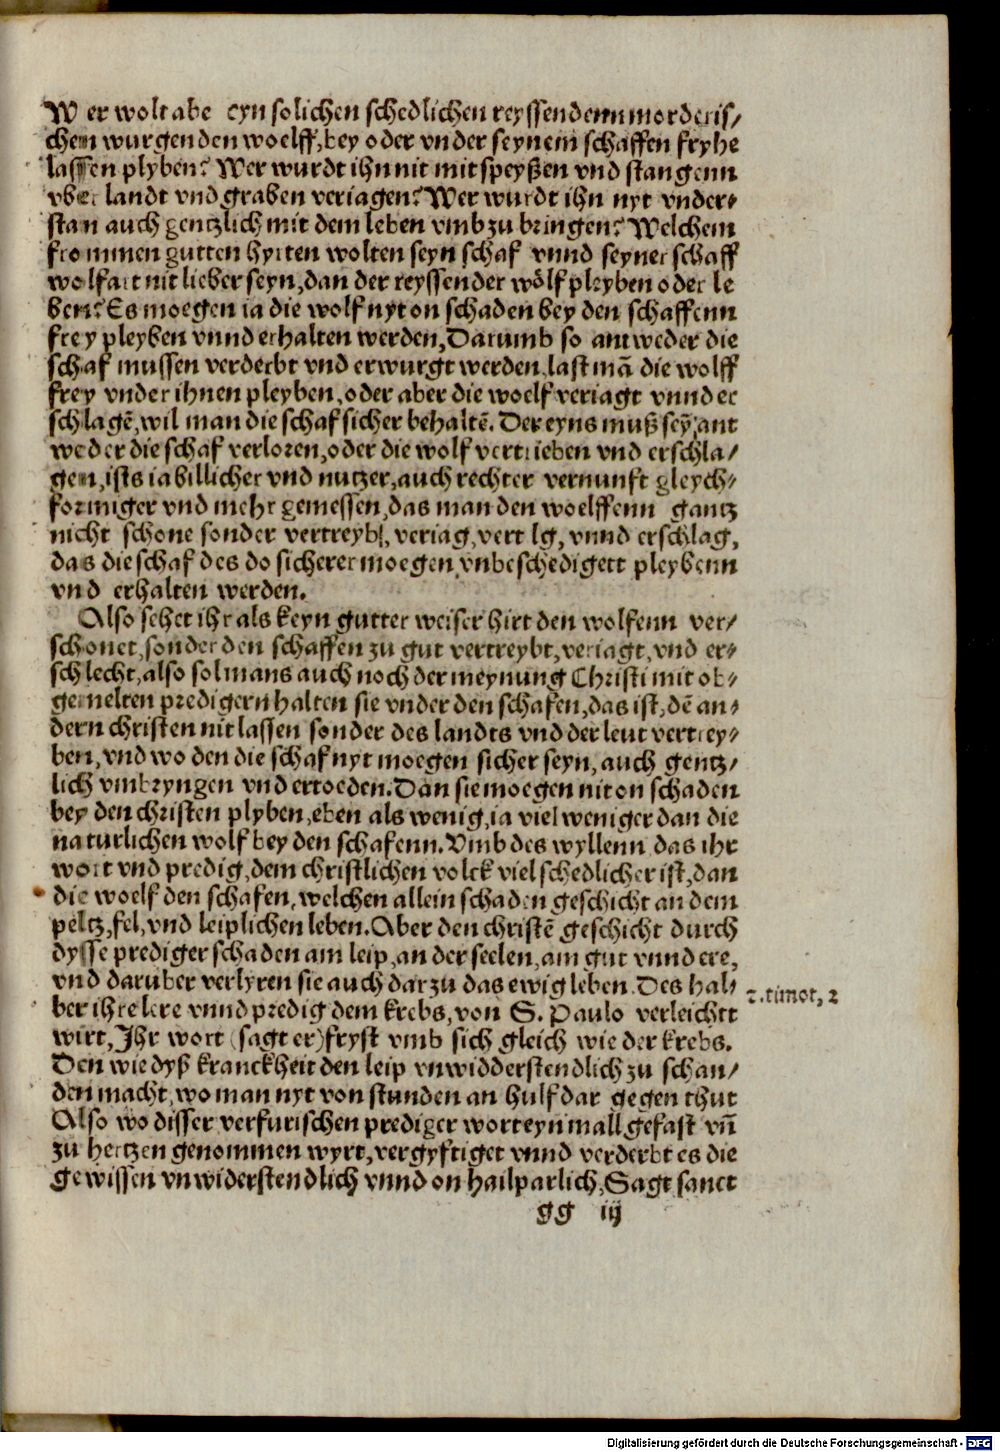 Wer wolt abe eyn solichen schedlichen reyssendenn morderis/
chem wurgenden woelff, bey oder vnder seynem schaffen fryhe
lassen plyben? Wer wurdt ihn nit mit speyßen vnd stangenn
vber landt vnd graben veriagen? Wer wurdt ihn nyt vnder⸗
stan auch gentzlich mit dem leben vmb zu bringen? Welchem
frommen gutten hyrten wolten seyn schaf vnnd seyner schaff
wolfart nit lieber seyn, dan der reyssender wôlf pleyben oder le
ben? Es moegen ia die wolf nyt on schaden bey den schaffenn
frey pleyben vnnd erhalten werden, Darumb so antweder die
schaf mussen verderbt vnd erwurgt werden, last mā die wolff
frey vnder ihnen pleyben, oder aber die woelf veriagt vnnd er
schlagē, wil man die schaf sicher behaltē. Der eyns muß seȳ, ant
weder die schaf verloren, oder die wolf vertrieben vnd erschla/
gen, ists ia billicher vnd nutzer, auch rechter vernunft gleych⸗
formiger vnd mehr gemessen, das man den woelffenn gantz
nicht schone sonder vertreyb, veriag, vert lg, vnnd erschlag,
das die schaf des do sicherer moegen, vnbeschedigett pleybenn
vnd erhalten werden.
Also sehet ihr als keyn gutter weiser hirt den wolfenn ver/
schonet, sonder den schaffen zu gut vertreybt, veriagt, vnd er⸗
schlecht, also sol mans auch noch der meynung Christi mit ob⸗
gemelten predigern halten sie vnder den schafen, das ist, dē an⸗
dern christen nit lassen sonder des landts vnd der leut vertrey⸗
ben, vnd wo den die schaf nyt moegen sicher seyn, auch gentz/
lich vmbryngen vnd ertoeden. Dan sie moegen nit on schaden
bey den christen plyben, eben als wenig, ia viel weniger dan die
naturlichen wolf bey den schafenn. Vmb des wyllenn das ihr
wort vnd predig, dem christlichen volck viel schedlicher ist, dan
die woelf den schafen, welchen allein schaden geschicht an dem
peltz, fel, vnd leiplichen leben. Aber den christē geschicht durch
dysse prediger schaden am leip, an der seelen, am gut vnnd ere,
vnd daruber verlyren sie auch dar zu das ewig leben. Des hal⸗
2. timot, 2
ber ihre lere vnnd predig dem krebs, von S. Paulo verleichtt
wirt, Ihr wort (sagt er) fryst vmb sich gleich wie der krebs.
Den wie dyß kranckheit den leip vnwidderstendlich zu schan/
den macht, wo man nyt von stunden an hulf dar gegen thut
Also wo disser verfurischen prediger wort eyn mall gefast vn̄
zu hertzen genommen wyrt, vergyftiget vnnd verderbt es die
gewissen vnwiderstendlich vnnd on hailparlich, Sagt sanct
gg iij
Digitalisierung gefördert durch die Deutsche Forschungsgemeinschaft - DFG